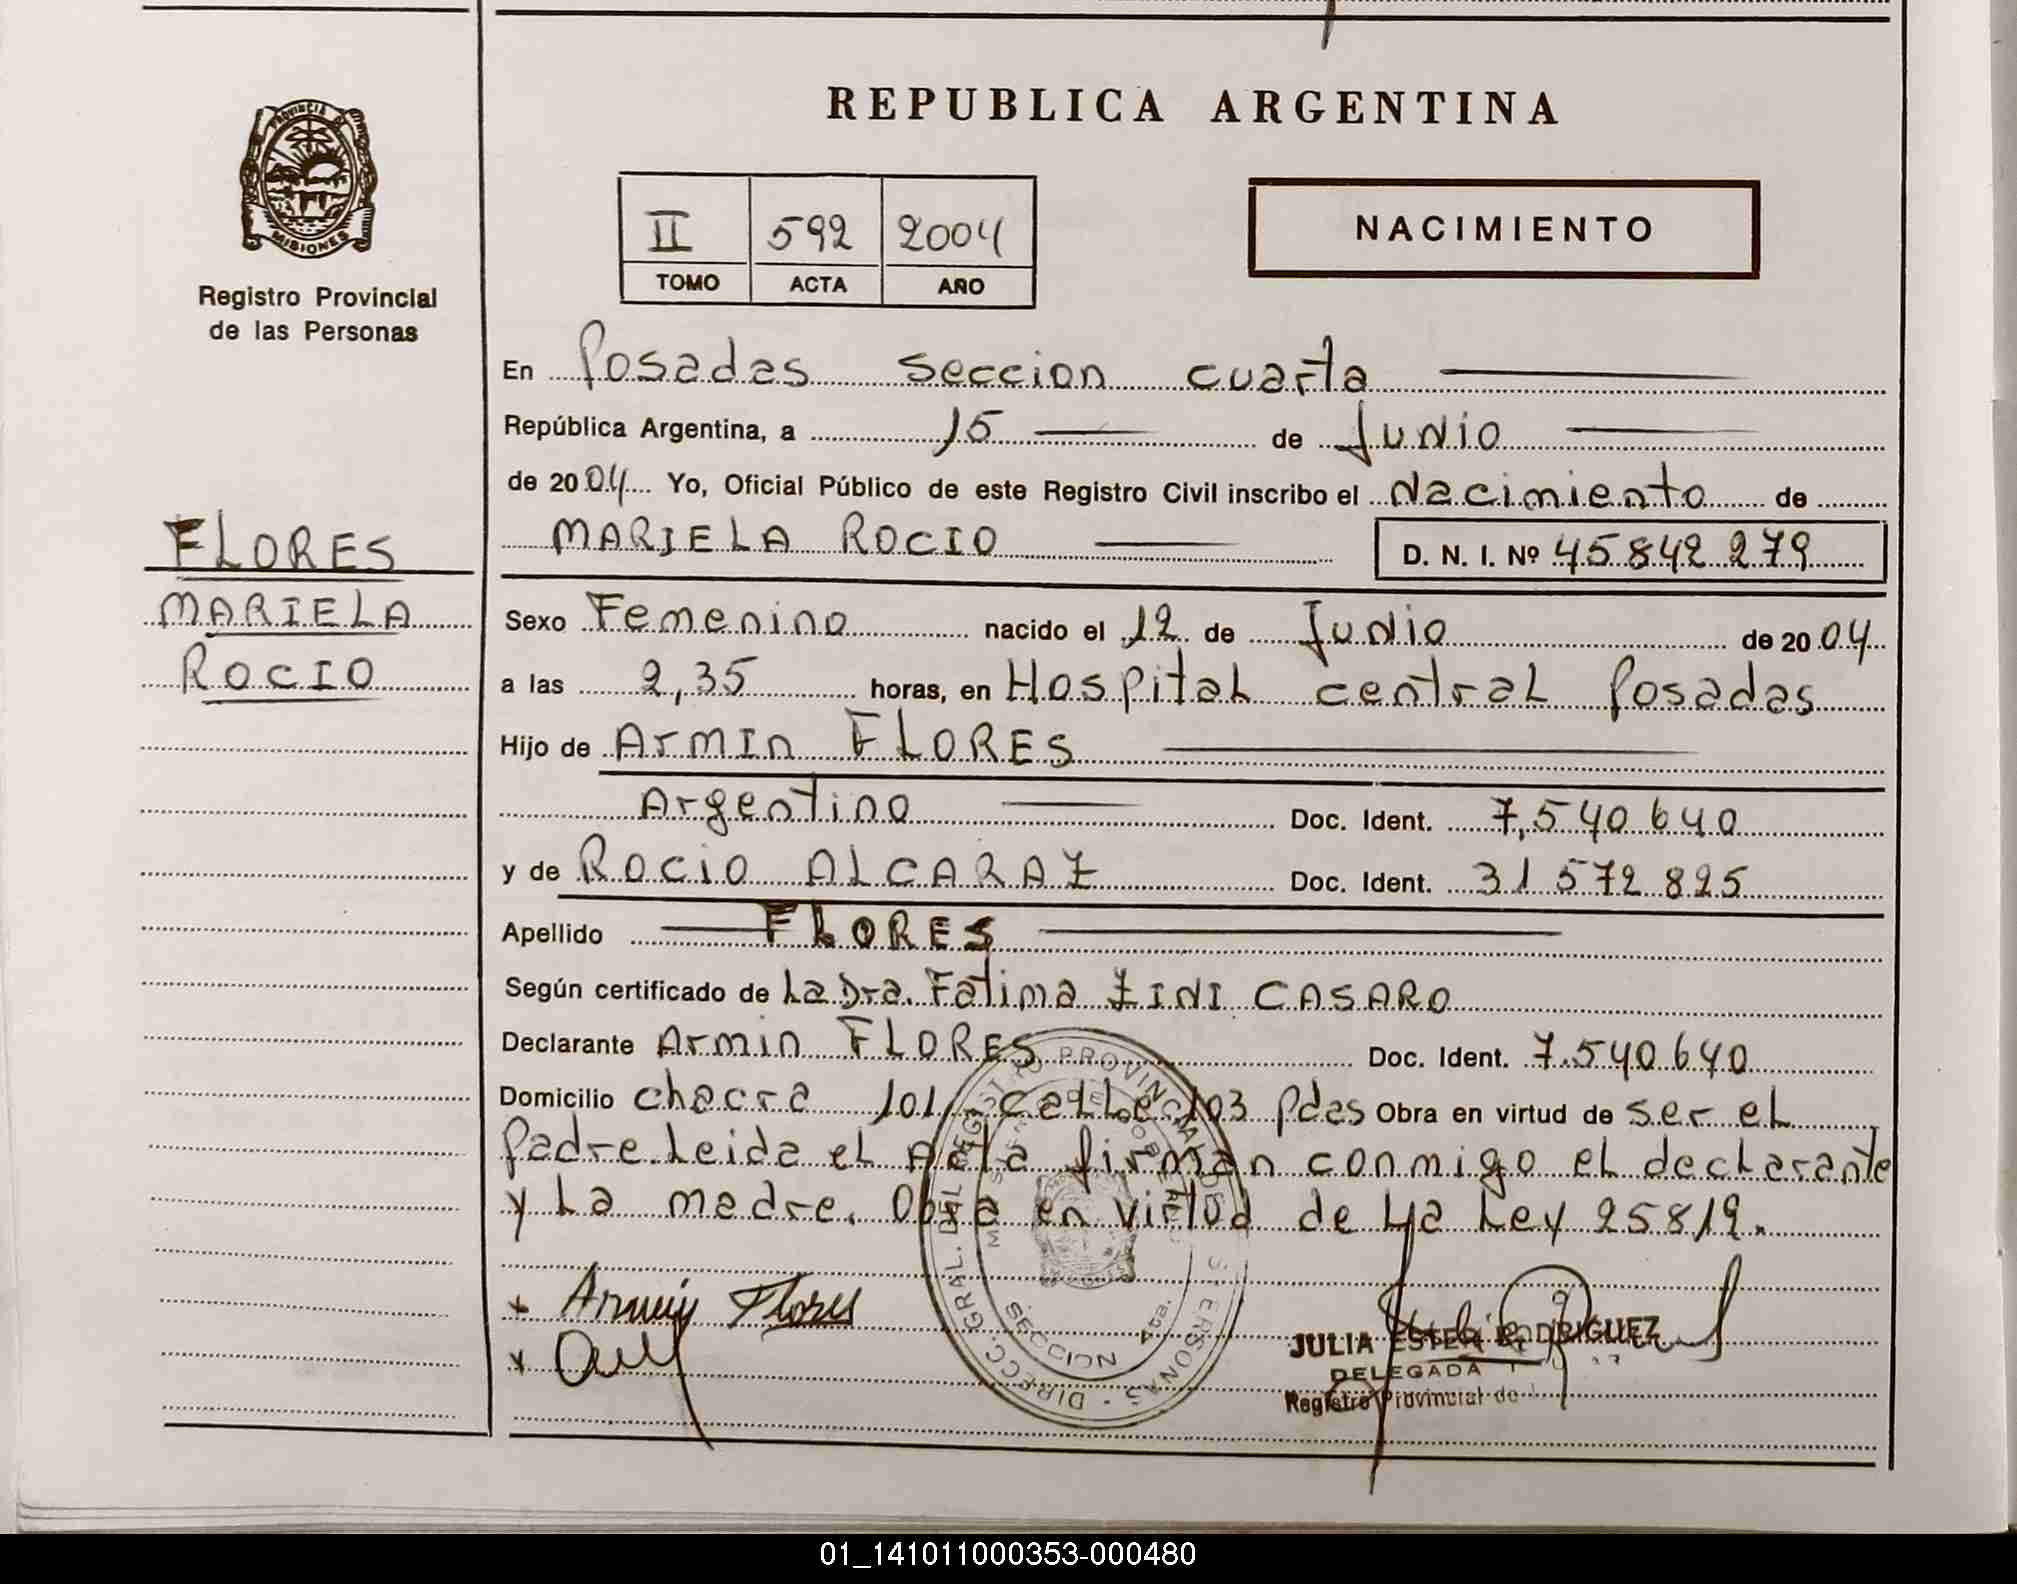 REPUBLICA ARGENTINA
PROVINCIA DE
MISIONES
Registro Provincial
de las Personas
II 592 2004
TOMO ACTA AÑO
NACIMIENTO
En Posadas seccion cuarta
República Argentina, a 15 de Junio
de 2004 Yo, Oficial Público de este Registro Civil inscribo el Nacimiento de
MARIELA ROCIO D. N. I. Nº 45 842 279
FLORES
MARIELA
ROCIO
Sexo Femenino nacido el 12 de Junio de 2004
a las 2,35 horas, en Hospital central Posadas
Hijo de Armin FLORES
Argentino Doc. Ident. 7,540 640
y de ROCIO ALCARAZ Doc. Ident. 31 572 825
Apellido FLORES
Según certificado de La Dra. Fatima ZINI CASARO
Declarante Armin FLORES Doc. Ident. 7.540.640
Domicilio chacra 101, calle 103 Pdas Obra en virtud de ser el
Padre. Leida el Acta firman conmigo el declarante
y la madre. Obra en virtud de la Ley 25819.
Armin Flores
JULIA ESTER RODRIGUEZ
DELEGADA
Registro Provincial de
DIRECC. GRAL. DEL REGISTRO PROVINCIAL DE PERSONAS
SECCION 4ta.
01_141011000353-000480